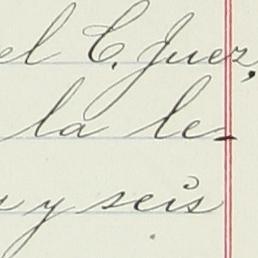 el C. Juez,
la le-
y seis